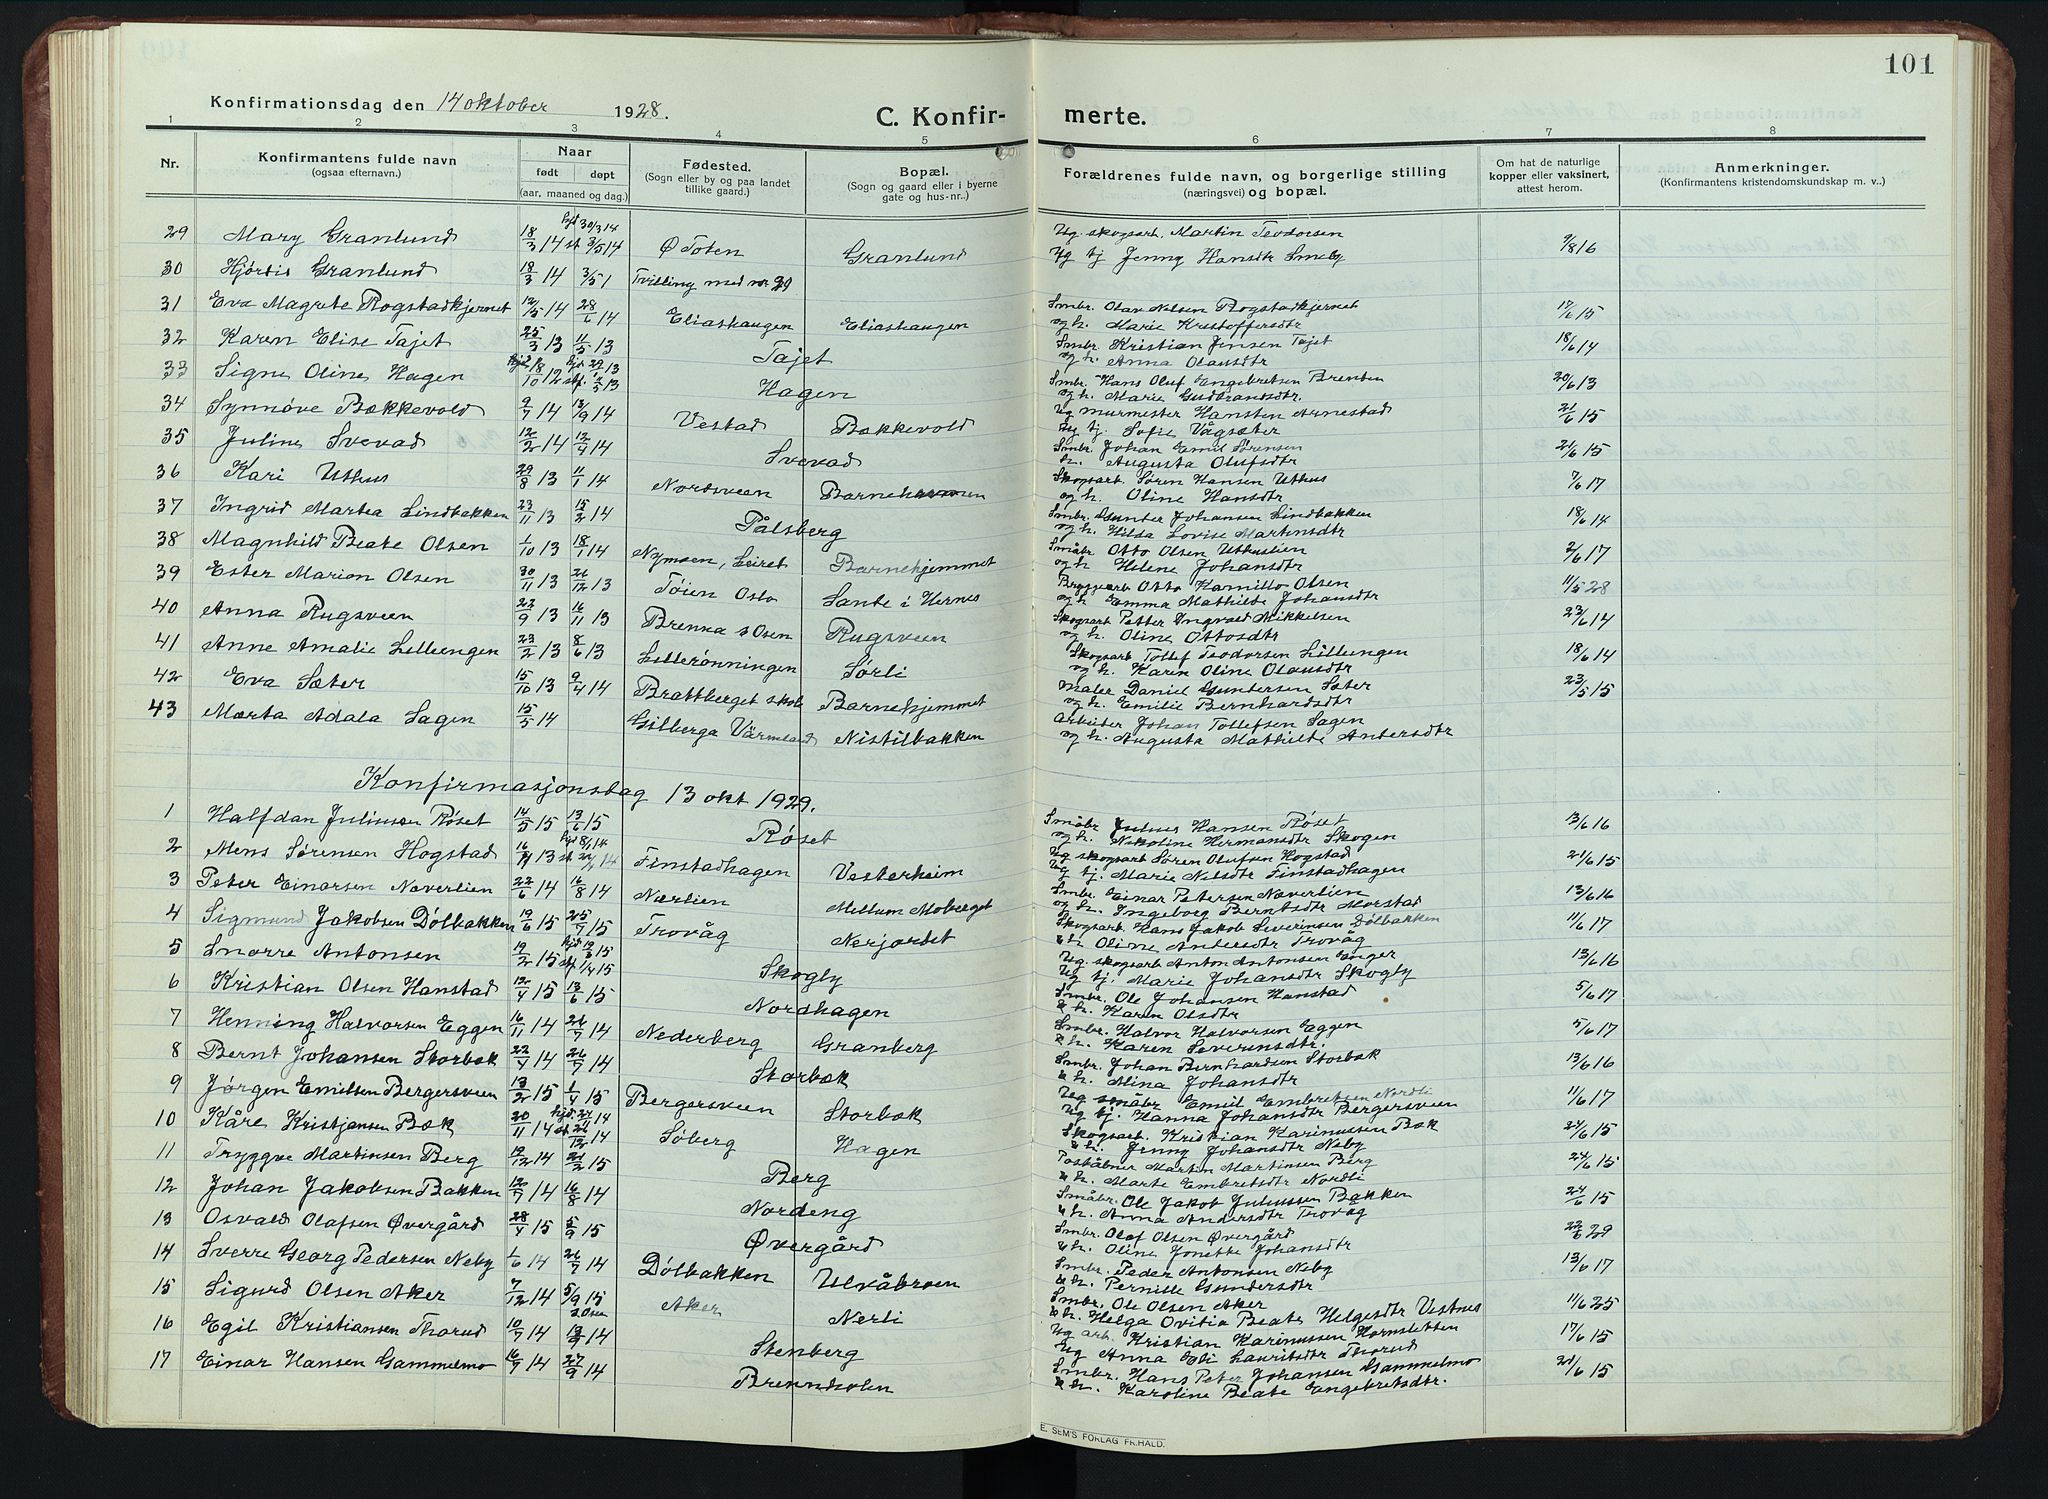 101
Konfirmationsdag den 14 oktober 1928.
C. Konfir- merte.
1 2 3 4 5 6 7 8
Nr.
Konfirmantens fulde navn
(ogsaa efternavn.)
Naar
født døpt
(aar, maaned og dag.)
Fødested.
(Sogn eller by og paa landet
tillike gaard.)
Bopæl.
(Sogn og gaard eller i byerne
gate og hus-nr..)
Forældrenes fulde navn, og borgerlige stilling
(næringsvei) og bopæl.
Om hat de naturlige
kopper eller vaksinert,
attest herom.
Anmerkninger.
(Konfirmantens kristendomskundskap m. v..)
29 Mary Granlund 18/3 14 hjd 30/3 14 st 3/5 14 Ø Toten Granlund Ug. skogsarb. Martin Teodorsen 9/8 16
Ug tj Jenny Hansdtr Smeby
30 Hjördis Granlund 18/3 14 3/5 1 Tvilling med nr 29
31 Eva Magrete Rogstadkjernet 12/5 14 28/6 14 Eliashaugen Eliashaugen Smbr. Olav Nilsen Rogstadkjernet 17/6 15
og h. Marie Kristoffersdtr
32 Karen Elise Tajet 25/3 13 11/5 13 Tajet Smbr. Kristian Jensen Tajet 18/6 14
og h. Anna Olausdtr
33 Signe Oline Hagen 18/10 12 hjd. 29/ 13 stf. 1/5 13 Hagen Smbr. Hans Oluf Engebretsen Brenden 20/6 13
og h. Marie Gudbrandsdtr.
34 Synnøve Bækkevold 9/7 14 13/9 14 Vestad Bækkevold Ug murmester Hansten Arnestad 21/6 15
Ug tj. Sofie Vågsæter
35 Juline Svevad 12/2 14 12/4 14 Svevad Smbr. Johan Emil Sørensen 21/6 15
h. Augusta Olufsdtr
36 Kari Uthus 29/8 13 11/1 14 Nordsveen Barnehjemmen Skogsarb. Søren Hansen Uthus 7/6 17
og h. Oline Hansdtr
37 Ingrid Martea Lindbakken 23/11 13 15/2 14 Pålsberg Smbr. Gunder Johansen Lindbakken 18/6 14
og h. Hilda Lovise Martinsdtr
38 Magnhild Beate Olsen 1/10 13 18/1 14 Nymoen, Leiret Barnehjemmet Småbr Otto Olsen Uthuslien 2/6 17
og h. Helene Johansdtr
39 Ester Marion Olsen 30/11 13 26/12 13 Tøien Oslo Sande i Hernes Bryggearb Otto Kamillo Olsen 11/5 28
og h Emma Mathilde Johansdtr
40 Anna Rugsveen 22/9 13 16/11 13 Brenna s Osen Rugsveen Skogsarb Petter Ingvald Mikkelsen 23/6 14
og h. Oline Ottosdtr
41 Anne Amalie Lilleengen 23/2 13 8/6 13 Lillerønningen Sørli Skogsarb Tollef Teodorsen Lilleengen 18/6 14
og h. Karen Oline Olausdtr
42 Eva Sæter 15/10 13 9/4 14 Brattberget skole Barnehjemmet Maler Daniel Gundersen Sæter 23/5 15
og h. Emilie Bernhardsdtr
43 Marta Adala Sagen 15/5 14 Gilberga Värmland Nistilbakken Arbeider Johan Tollefsen Sagen
og h. Augusta Mathilde Andersdtr
Konfirmasjonsdag 13 okt 1929.
1 Halfdan Juliussen Røset 14/5 15 13/6 15 Røset Småbr Julius Hansen Røset 13/6 16
og h. Nikoline Hermansdtr Skogen
2 Mens Sørensen Hogstad 16/ 13 Finstadhagen Vesterheim Ug skogsarb Søren Olufsen Hogstad 21/6 15
Ug tj. Marie Nilsdtr Finstadhagen
3 Peter Einarsen Næverlien 22/6 14 16/8 14 Nærlien Mellum Moberget Smbr. Einar Petersen Næverlien 13/6 16
og h. Ingeborg Berntsdtr Morstad
4 Sigmund Jakobsen Dølbakken 19/6 15 25/7 15 Trovåg Nerjordet Skogsarb. Hans Jakob Severinsen Dølbakken 11/6 17
& h Oline Andersdtr Trovåg
5 Snorre Antonsen 19/2 15 st. 1/4 15 Skogby Ug. skogsarb Anton Antonsen Enger 13/6 16
Ug tj. Marie Johansdtr Skogby
6 Kristian Olsen Hanstad 12/4 15 13/6 15 Nordhagen Smbr. Ole Johansen Hanstad 5/6 17
& h. Karen Olsdtr
7 Henning Halvorsen Eggen 16/11 14 26/7 14 Nederberg Granberg Smbr. Halvor Halvorsen Eggen 5/6 17
& h. Karen Severinsdtr.
8 Bernt Johansen Storbæk 22/4 14 26/7 14 Storbæk Smbr. Johan Bernhardsen Storbæk 13/6 16
& h. Mina Johansdtr
9 Jørgen Emilsen Bergersveen 13/2 15 1/4 15 Bergersveen Storbæk Ug småbr Emil Embretsen Nordli 11/6 17
Ug tj. Hanna Johansdtr Bergersveen
10 Kåre Kristjansen Bæk 20/11 14 st. 26/12 14 Søberg Hagen Skogsarb. Kristian Karinussen Bæk 24/6 15
& h. Jenny Johansdtr Neby
11 Tryggve Martinsen Berg 19/12 14 21/2 15 Berg Poståbner Martin Martinsen Berg 24/6 15
& h. Marte Embretsdtr Nordli
12 Johan Jakobsen Bakken 12/7 14 16/8 14 Nordeng Småbr. Ole Jakob Juliussen Bakken 24/6 15
& h. Anna Andersdtr Trovåg
13 Osvald Olafsen Øvergård 28/4 15 5/9 15 Øvergård Smbr. Olof Olsen Øvergård 22/6 29
& h. Oline Jonette Johansdtr
14 Sverre Georg Pedersen Neby 1/6 14 26/7 14 Dølbakken Ulvåbroen Smbr. Peder Antonsen Neby 13/6 17
& h. Pernille Gundersdtr
15 Sigurd Olsen Aker 7/12 14 5/9 15 Aker Nerli Smbr. Ole Olsen Aker 11/6 25
& h. Helga Ovitia Beate Helgesdtr Vestnes
16 Egil Kristiansen Thorud 10/7 14 13/9 14 Stenberg Ug arb. Kristian Karinussen Kornsletten 17/6 15
Ug Anna Eli Lauritsdtr Thorud
17 Einar Hansen Gammelmo 16/9 14 27/9 14 Brennholen Smbr. Hans Peter Johansen Gammelmo 21/6 15
& h. Karoline Beate Engebretsdtr.
E. SEM'S FORLAG FR.HALD.